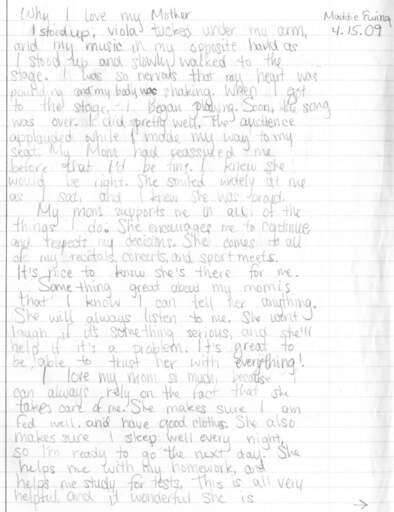 Why I love my Mother
Maddie Ewing
4.15.09
I stood up, viola tucked under my arm,
and my music in my opposite hand as
I stood up and slowly walked to the
stage. I was so nervous that my heart was
pounding and my body was shaking. When I got
to the stage, I began playing. Soon, the song
was over. I did pretty well. The audience
applauded while I made my way to my
seat. My Mom had reassured me
before that I'd be fine. I knew she
would be right. She smiled widely at me
as I sat, and I knew she was proud.
My mom supports me in all of the
things I do. She encourages me to continue
and respects my decisions. She comes to all
of my recitals, concerts, and sport meets.
It's nice to know she's there for me.
Something great about my mom is
that I know I can tell her anything.
She will always listen to me. She won't
laugh if it's something serious, and she'll
help if it's a problem. It's great to
be able to trust her with everything!
I love my mom so much, because I
can always rely on the fact that she
takes care of me. She makes sure I am
fed well, and have good clothes. She also
makes sure I sleep well every night,
so I'm ready to go the next day. She
helps me with my homework, and
helps me study for tests. This is all very
helpful, and it wonderful she is
→